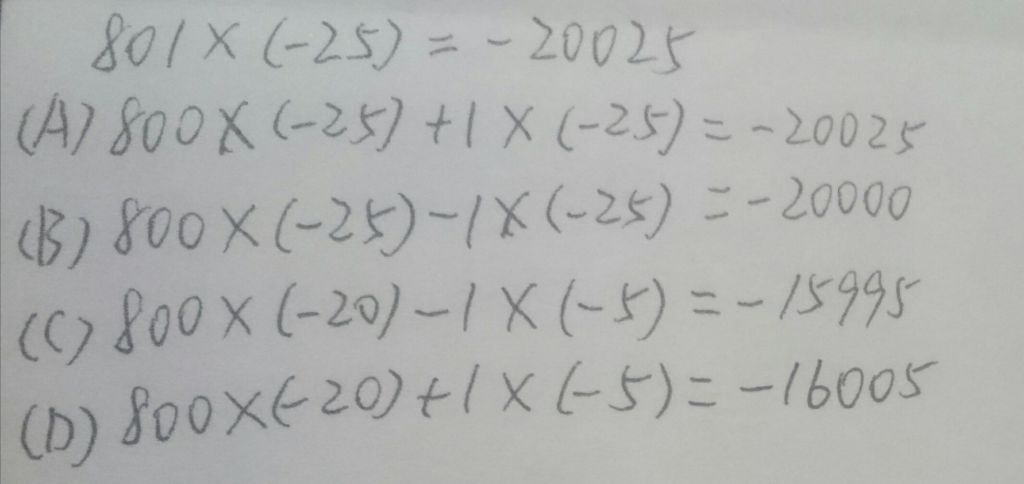 801 × (-25) = -20025
(A) 800 × (-25) + 1 × (-25) = -20025
(B) 800 × (-25) - 1 × (-25) = -20000
(C) 800 × (-20) - 1 × (-5) = -15995
(D) 800 × (-20) + 1 × (-5) = -16005